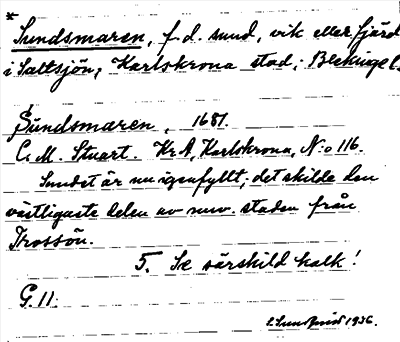 *
Sundsmaren, f.d. sund, vik eller fjärd
i Saltsjön, Karlskrona stad, Blekinge l.
Sundsmaren, 1681.
C. M. Stuart. Kr A, Karlskrona, N:o 116.
Sundet är nu igenfyllt; det skilde den
västligaste delen av nuv. staden från
Trossön.
5. Se särskild kalk!
G. 11.
S. Sundquist 1936.